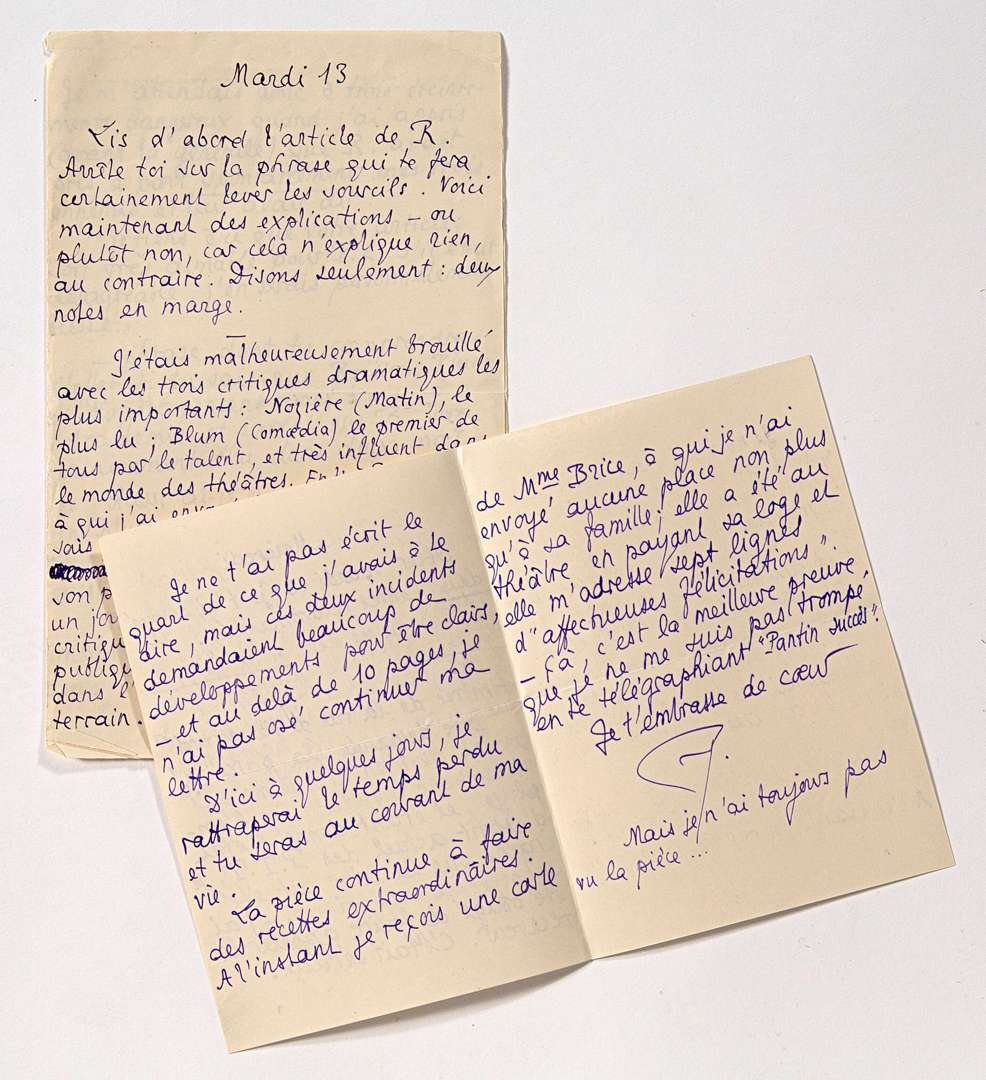 Mardi 13
Lis d'abord l'article de R.
Arrête toi sur la phrase qui te fera
certainement lever les sourcils. Voici
maintenant des explications – ou
plutôt non, car cela n'explique rien,
au contraire. Disons seulement : deux
notes en marge.
J'étais malheureusement brouillé
avec les trois critiques dramatiques les
plus importants : Nozière (Matin), le
plus lu ; Blum (Comœdia) le premier de
tous par le talent, et très influent dans
le monde des théâtres.
à qui j'ai
sais
son
un
critiqu
publiq
dans
terrain.
Je ne t'ai pas écrit le
quart de ce que j'avais à te
dire, mais ces deux incidents
demandaient beaucoup de
développements pour être clairs,
– et au delà de 10 pages, je
n'ai pas osé continuer ma
lettre.
D'ici à quelques jours, je
rattraperai le temps perdu
et tu seras au courant de ma
vie.
La pièce continue à faire
des recettes extraordinaires.
A l'instant je reçois une carte
de Mme Brice, à qui je n'ai
envoyé aucune place non plus
qu'à sa famille ; elle a été au
théâtre en payant sa loge et
elle m'adresse sept lignes
d'"affectueuses félicitations".
– Ça, c'est la meilleure preuve
que je ne me suis pas trompé
en te télégraphiant "Pantin succès".
Je t'embrasse de cœur
P.
Mais je n'ai toujours pas
vu la pièce...